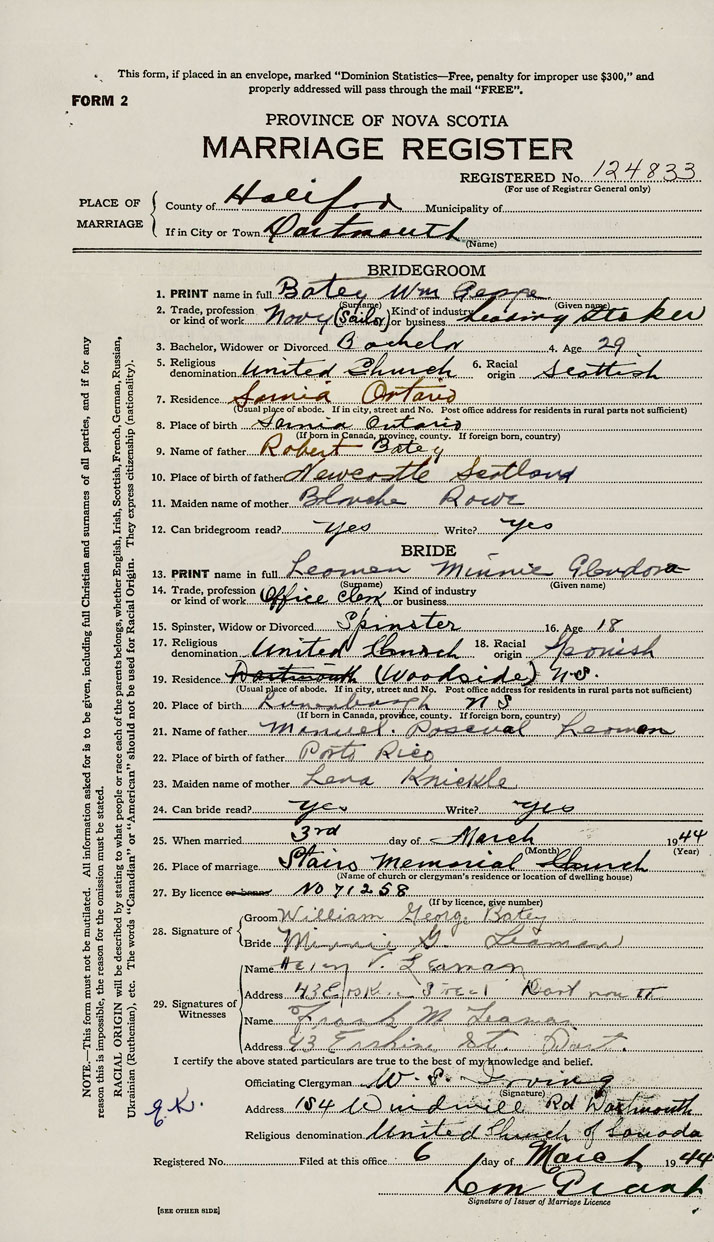 This form, if placed in an envelope, marked “Dominion Statistics—Free, penalty for improper use $300,” and
properly addressed will pass through the mail “FREE”.
FORM 2
PROVINCE OF NOVA SCOTIA
MARRIAGE REGISTER
REGISTERED No. 124833
(For use of Registrar General only)
PLACE OF MARRIAGE
County of Halifax Municipality of
If in City or Town Dartmouth
(Name)
BRIDEGROOM
1. PRINT name in full Batey Wm George
(Surname) (Given name)
2. Trade, profession or kind of work Navy (Sailor) Kind of industry or business Leading Stoker
3. Bachelor, Widower or Divorced Bachelor 4. Age 29
5. Religious denomination United Church 6. Racial origin Scottish
7. Residence Sarnia Ontario
(Usual place of abode. If in city, street and No. Post office address for residents in rural parts not sufficient)
8. Place of birth Sarnia Ontario
(If born in Canada, province, county. If foreign born, country)
9. Name of father Robert Batey
10. Place of birth of father Newcastle Scotland
11. Maiden name of mother Blanche Rowe
12. Can bridegroom read? yes Write? yes
BRIDE
13. PRINT name in full Leaman Minnie Glendora
(Surname) (Given name)
14. Trade, profession or kind of work Office Clerk Kind of industry or business
15. Spinster, Widow or Divorced Spinster 16. Age 18
17. Religious denomination United Church 18. Racial origin Spanish
19. Residence Dartmouth (Woodside) N.S.
(Usual place of abode. If in city, street and No. Post office address for residents in rural parts not sufficient)
20. Place of birth Lunenburg N S
(If born in Canada, province, county. If foreign born, country)
21. Name of father Manuel Pascual Leaman
22. Place of birth of father Porto Rico
23. Maiden name of mother Lena Knickle
24. Can bride read? yes Write? yes
25. When married 3rd day of March 1944
(Month) (Year)
26. Place of marriage Stairs Memorial Church
(Name of church or clergyman's residence or location of dwelling house)
27. By licence or banns No 71258
(If by licence, give number)
28. Signature of
Groom William George Batey
Bride Minnie G. Leaman
29. Signatures of Witnesses
Name Helen V. Leaman
Address 43 Erskine Street Dartmouth
Name Frank M Leaman
Address 43 Erskine St. Dart.
I certify the above stated particulars are true to the best of my knowledge and belief.
Officiating Clergyman W. S. Irving
(Signature)
Address 184 Windmill Rd Dartmouth
Religious denomination United Church of Canada
Registered No. Filed at this office 6 day of March 1944
Signature of Issuer of Marriage Licence
[SEE OTHER SIDE]
NOTE.—This form must not be mutilated. All information asked for is to be given, including full Christian and surnames of all parties, and if for any
reason this is impossible, the reason for the omission must be stated.
RACIAL ORIGIN will be described by stating to what people or race each of the parents belongs, whether English, Irish, Scottish, French, German, Russian,
Ukrainian (Ruthenian), etc. The words “Canadian” or “American” should not be used for Racial Origin. They express citizenship (nationality).